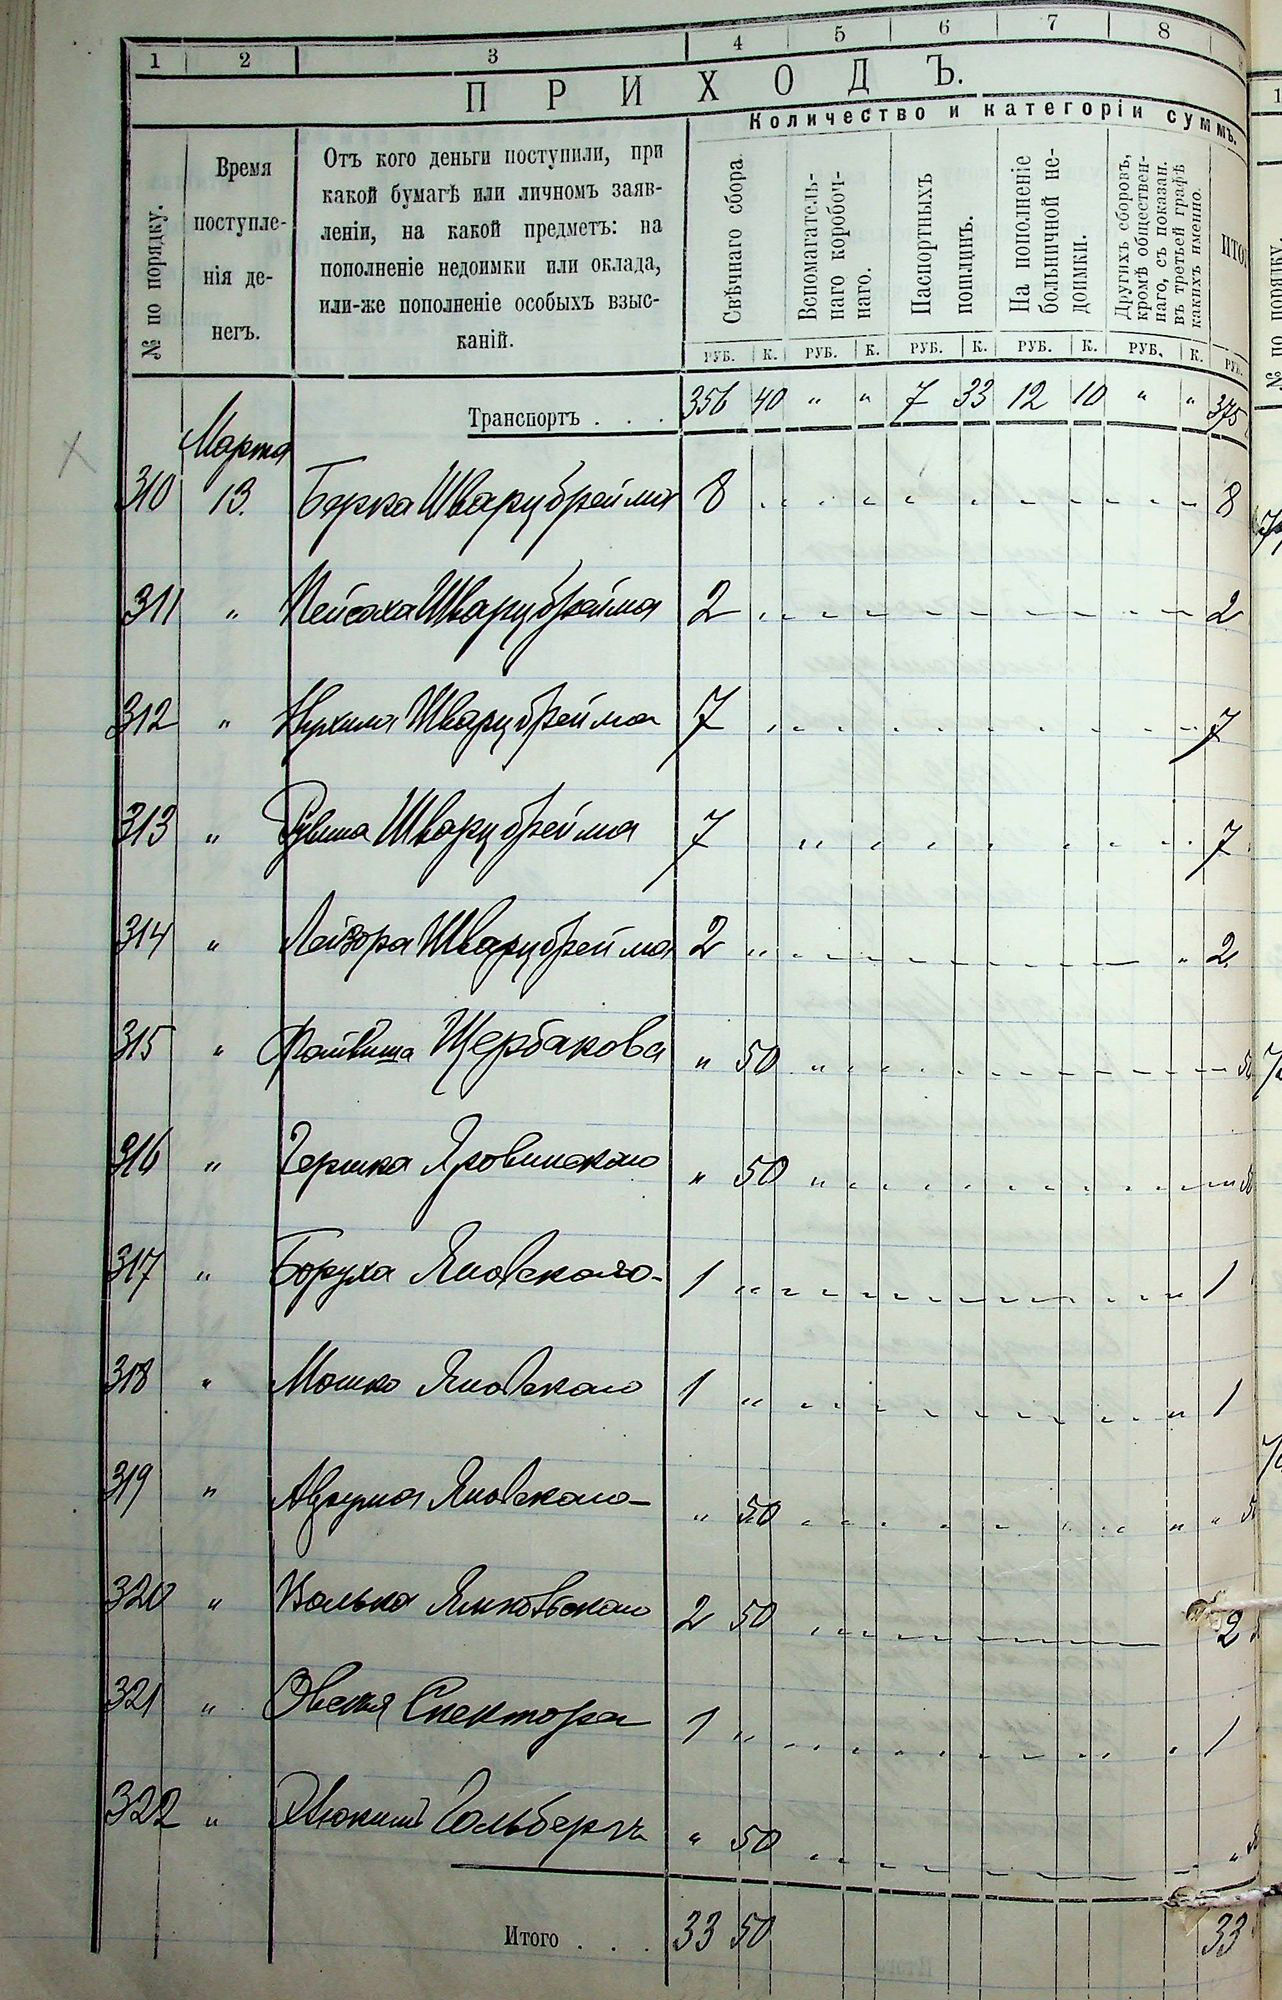 1 2 3 4 5 6 7 8
ПРИХОДЪ.
Количество и категоріи суммъ.
№ по порядку.
Время
поступле-
нія де-
негъ.
Отъ кого деньги поступили, при
какой бумагѣ или личномъ заяв-
леніи, на какой предметъ: на
пополненіе недоимки или оклада,
или-же пополненіе особыхъ взыс-
каній.
Свѣчнаго сбора.
Вспомагатель-
наго коробоч-
наго.
Паспортныхъ
пошлинъ.
На пополненіе
больничной не-
доимки.
Другихъ сборовъ,
кромѣ обществен-
наго, съ показан.
въ третьей графѣ
какихъ именно.
РУБ. К. РУБ. К. РУБ. К. РУБ. К. РУБ. К. РУБ.
Транспортъ . . . 356 40 " " 7 33 12 10 " " 375
Марта
310 13. Берка Шварцбрейма 8 8
311 " Пейсаха Шварцбрейма 2 2
312 " Нухима Шварцбрейма 7 7
313 " Шварцбрейма 7 7
314 " Лейзора Шварцбрейма 2 " " 2
315 " Файвиша Щербакова " 50 "
316 " Гершка Яровинскаго " 50 "
317 " Боруха Яновскаго 1 " " 1
318 " Мошко Яновскаго 1 " " 1
319 " Яновскаго " 50 " "
320 " Волька Янковскаго 2 50 2
321 " Овсея Спектора 1 " 1
322 " Гольбергъ " 50 "
Итого . . . 33 50 33